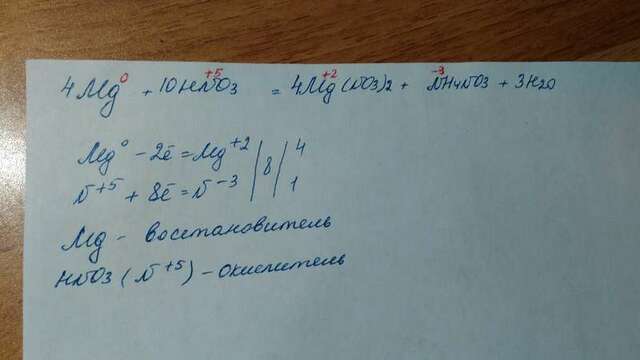 4Mg⁰ + 10HN⁺⁵O3 = 4Mg⁺²(NO3)2 + N⁻³H4NO3 + 3H2O
Mg⁰ - 2ē = Mg⁺² | 8 | 4
N⁺⁵ + 8ē = N⁻³ | | 1
Mg - восстановитель
HNO3 (N⁺⁵) - окислитель